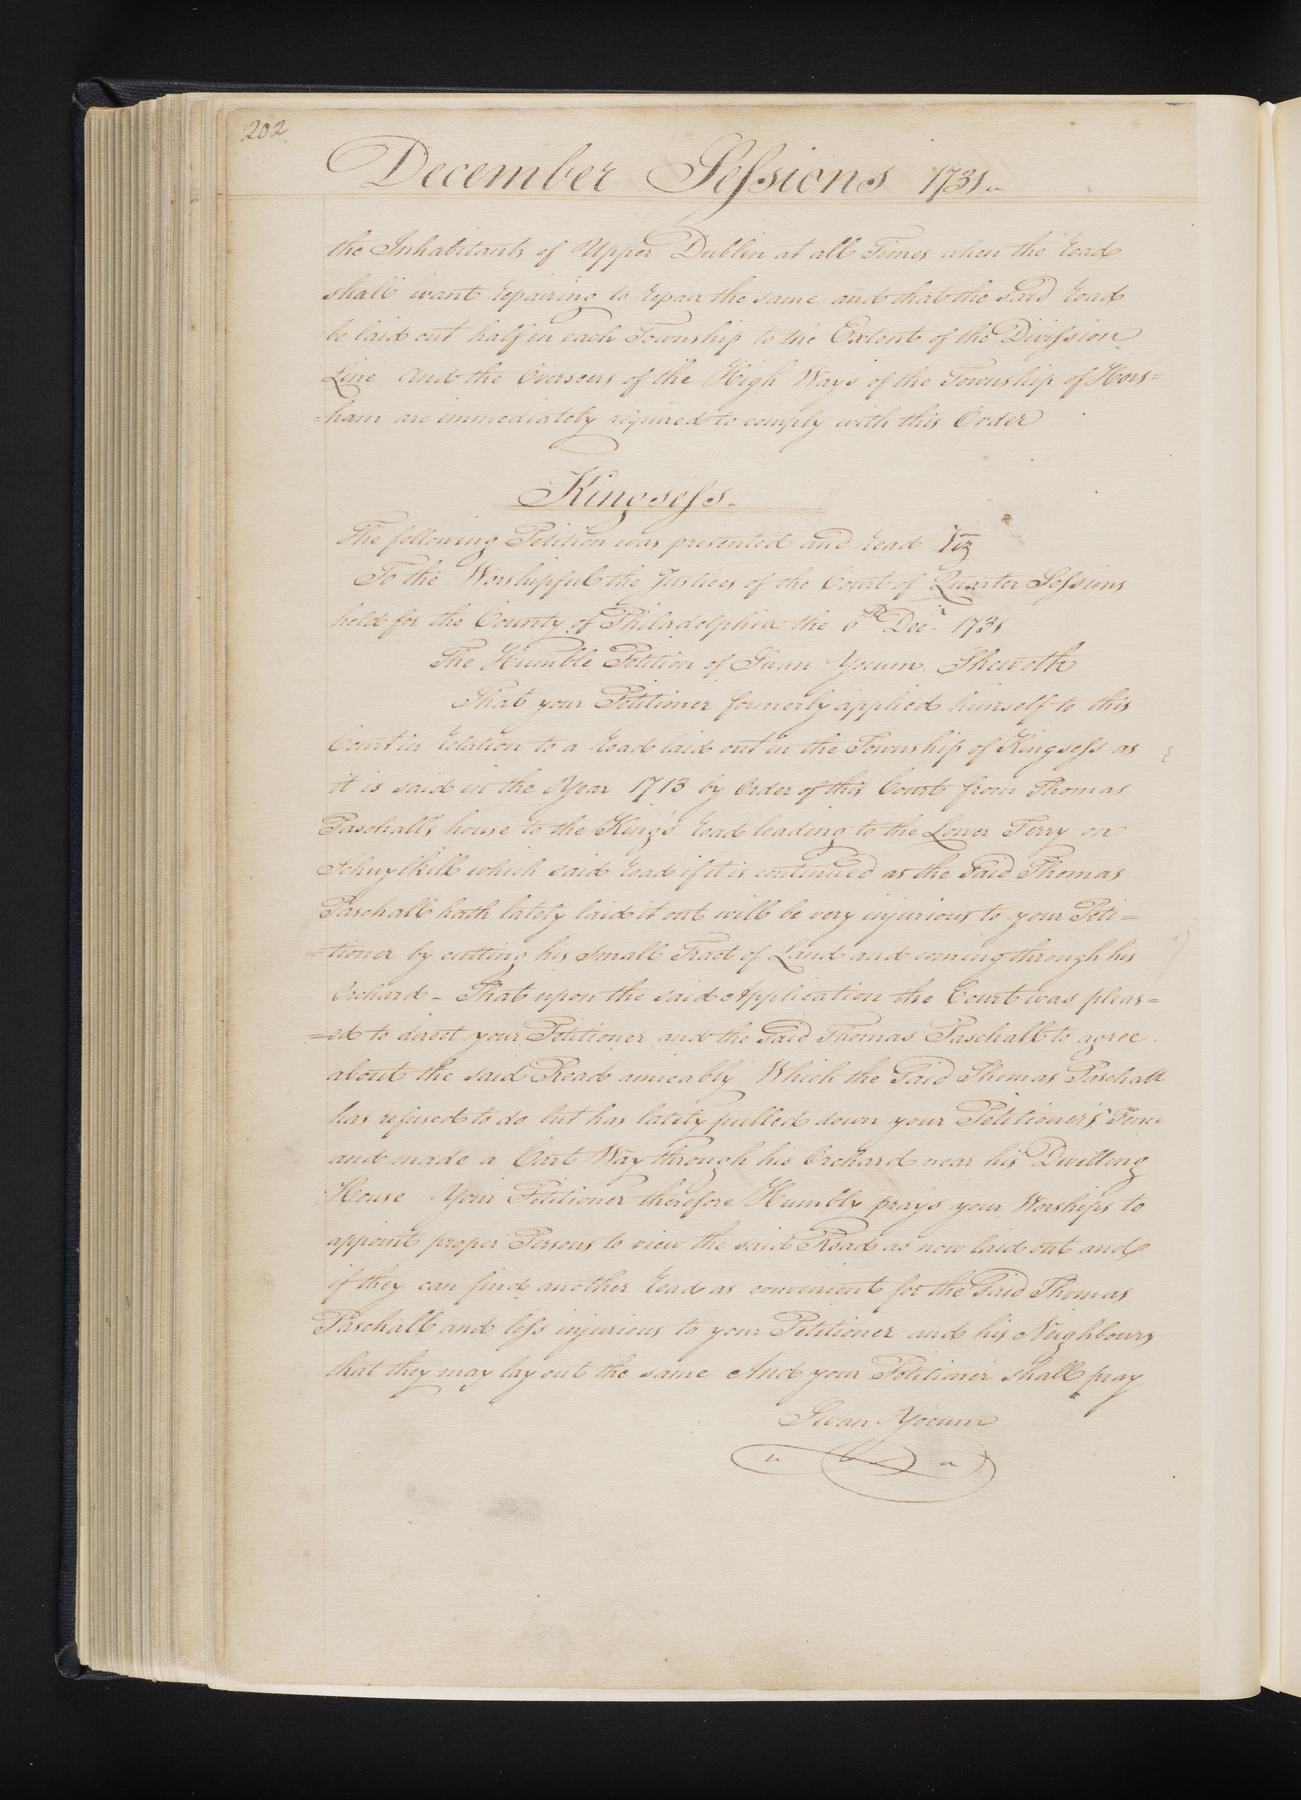 202
December Sessions 1731
the Inhabitants of Upper Dublin at all Times when the road
shall want repairing to repair the same and that the said road
be laid out half in each Township to the Extent of the Division
Line And the Overseers of the High Ways of the Township of Hors=
=ham are immediately required to comply with this Order
Kingsess.
The following Petition was presented and read Viz
To the Worshipful the Justices of the Court of Quarter Sessions
held for the County of Philadelphia the 6th Decr. 1731
The Humble Petition of Swan Yocum Sheweth
That your Petitioner formerly applied himself to this
Court in relation to a road laid out in the Township of Kingsess as
it is said in the Year 1713 by Order of this Court from Thomas
Paschall's house to the King's road leading to the Lower Ferry on
Schuylkill which said road if it is continued as the Said Thomas
Paschall hath lately laid it out will be very injurious to your Peti=
=tioner by cutting his small Tract of Land and coming through his
Orchard - That upon the said Application the Court was pleas=
=ed to direct your Petitioner and the Said Thomas Paschall to agree
about the said Road amicably Which the Said Thomas Paschall
has refused to do but has lately pulled down your Petitioner's Fence
and made a Cart Way through his Orchard near his Dwelling
House Your Petitioner therefore Humbly prays your Worships to
appoint proper Persons to view the said Road as now laid out and
if they can find another road as convenient for the Said Thomas
Paschall and less injurious to your Petitioner and his Neighbours
that they may lay out the same And your Petitioner shall pray
Swan Yocum